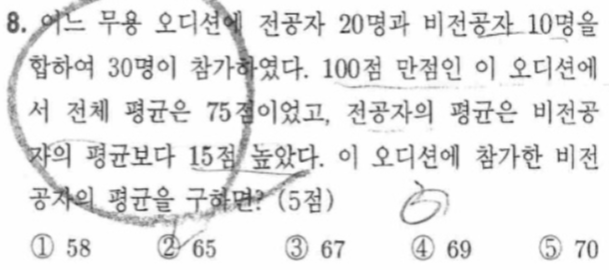 8. 어느 무용 오디션에 전공자 20명과 비전공자 10명을
합하여 30명이 참가하였다. 100점 만점인 이 오디션에
서 전체 평균은 75점이었고, 전공자의 평균은 비전공
자의 평균보다 15점 높았다. 이 오디션에 참가한 비전
공자의 평균을 구하면? (5점)
① 58 ② 65 ③ 67 ④ 69 ⑤ 70